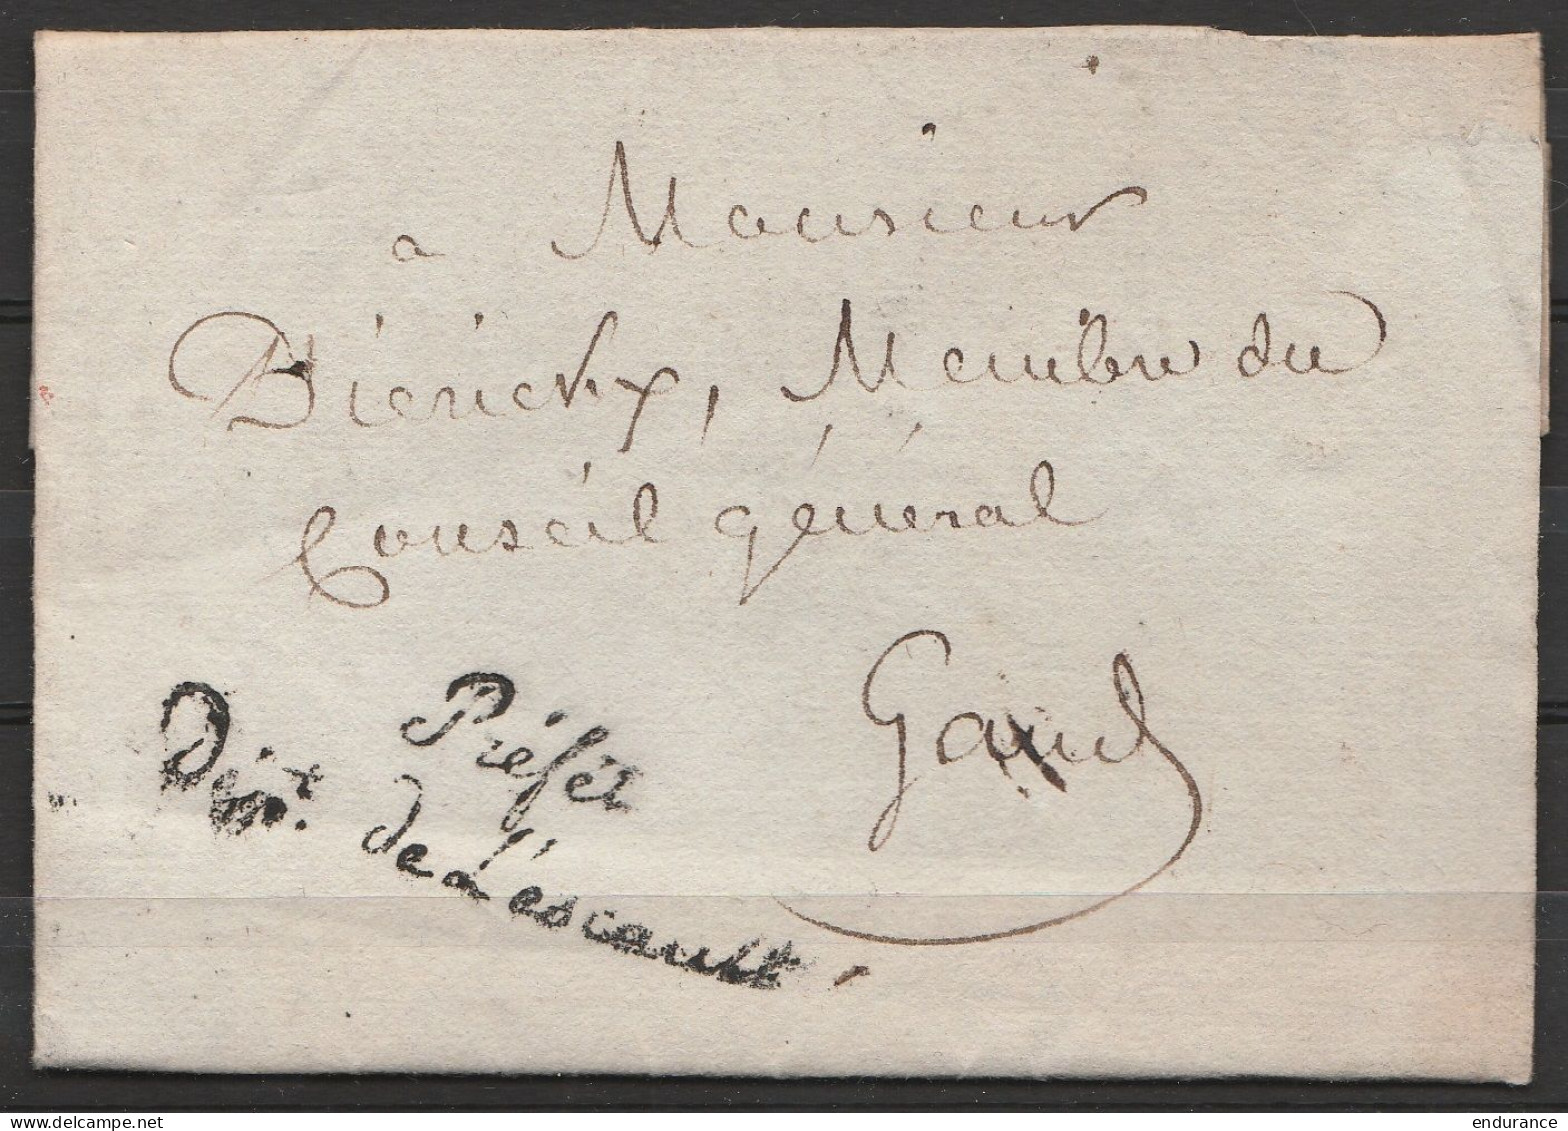 a Monsieur
Dierickx, Membre du
Conseil général
Gand
Préfet
Dép.t de L'escault
delcampe.net
endurance